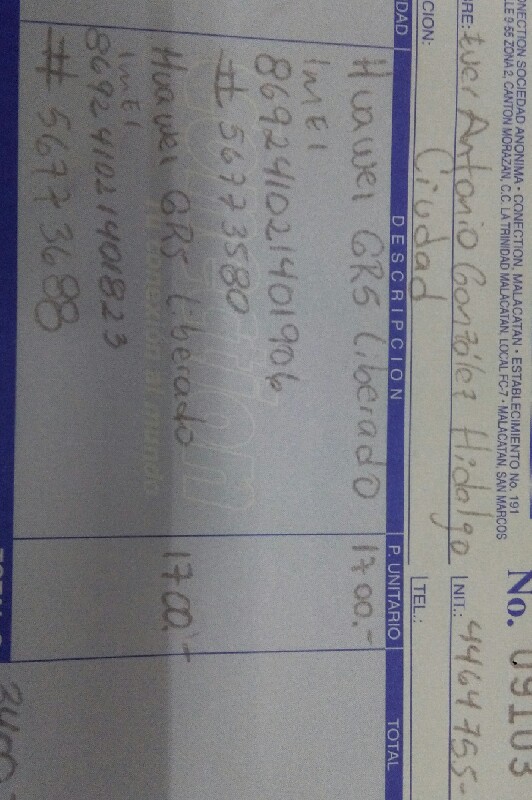 ONECTION SOCIEDAD ANONIMA • CONECTION, MALACATAN • ESTABLECIMIENTO No. 191
LLE 9-55 ZONA 2, CANTON MORAZAN, C.C. LA TRINIDAD MALACATAN, LOCAL FC-7 • MALACATAN, SAN MARCOS
No. 09103
RE: Ever Antonio González Hidalgo NIT.: 4464755-
CION: Ciudad TEL.:
DAD DESCRIPCION P. UNITARIO TOTAL
Huawei GR5 Liberado 1700.-
IMEI
869241021401906
# 56773580
Huawei GR5 Liberado 1700.-
IMEI
869241021401823
# 56773688
3400.-